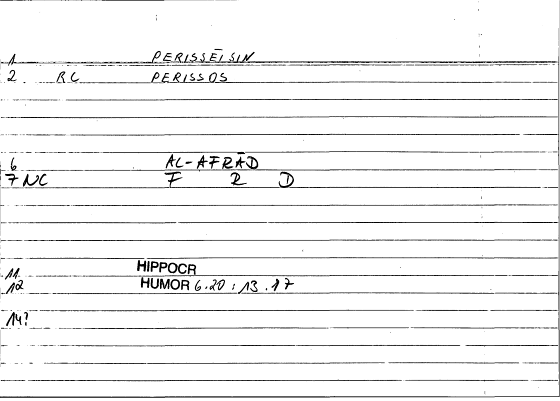 1 PERISSEĪSIN
2 RC PERISSOS
6 AL-AFRĀD
7 NC F R D
11 HIPPOCR
12 HUMOR 6.20 : 13.17
14?